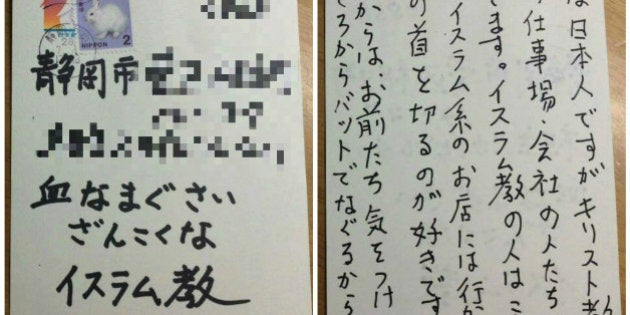 NIPPON
2
静岡市
血なまぐさい
ざんこくな
イスラム教
な日本人ですがキリスト教
仕事場・会社の人たち
てます。イスラム教の人はこ
イスラム系のお店には行か
の首を切るのが好きです
からは、お前たち気をつけ
ろからバットでなぐるから